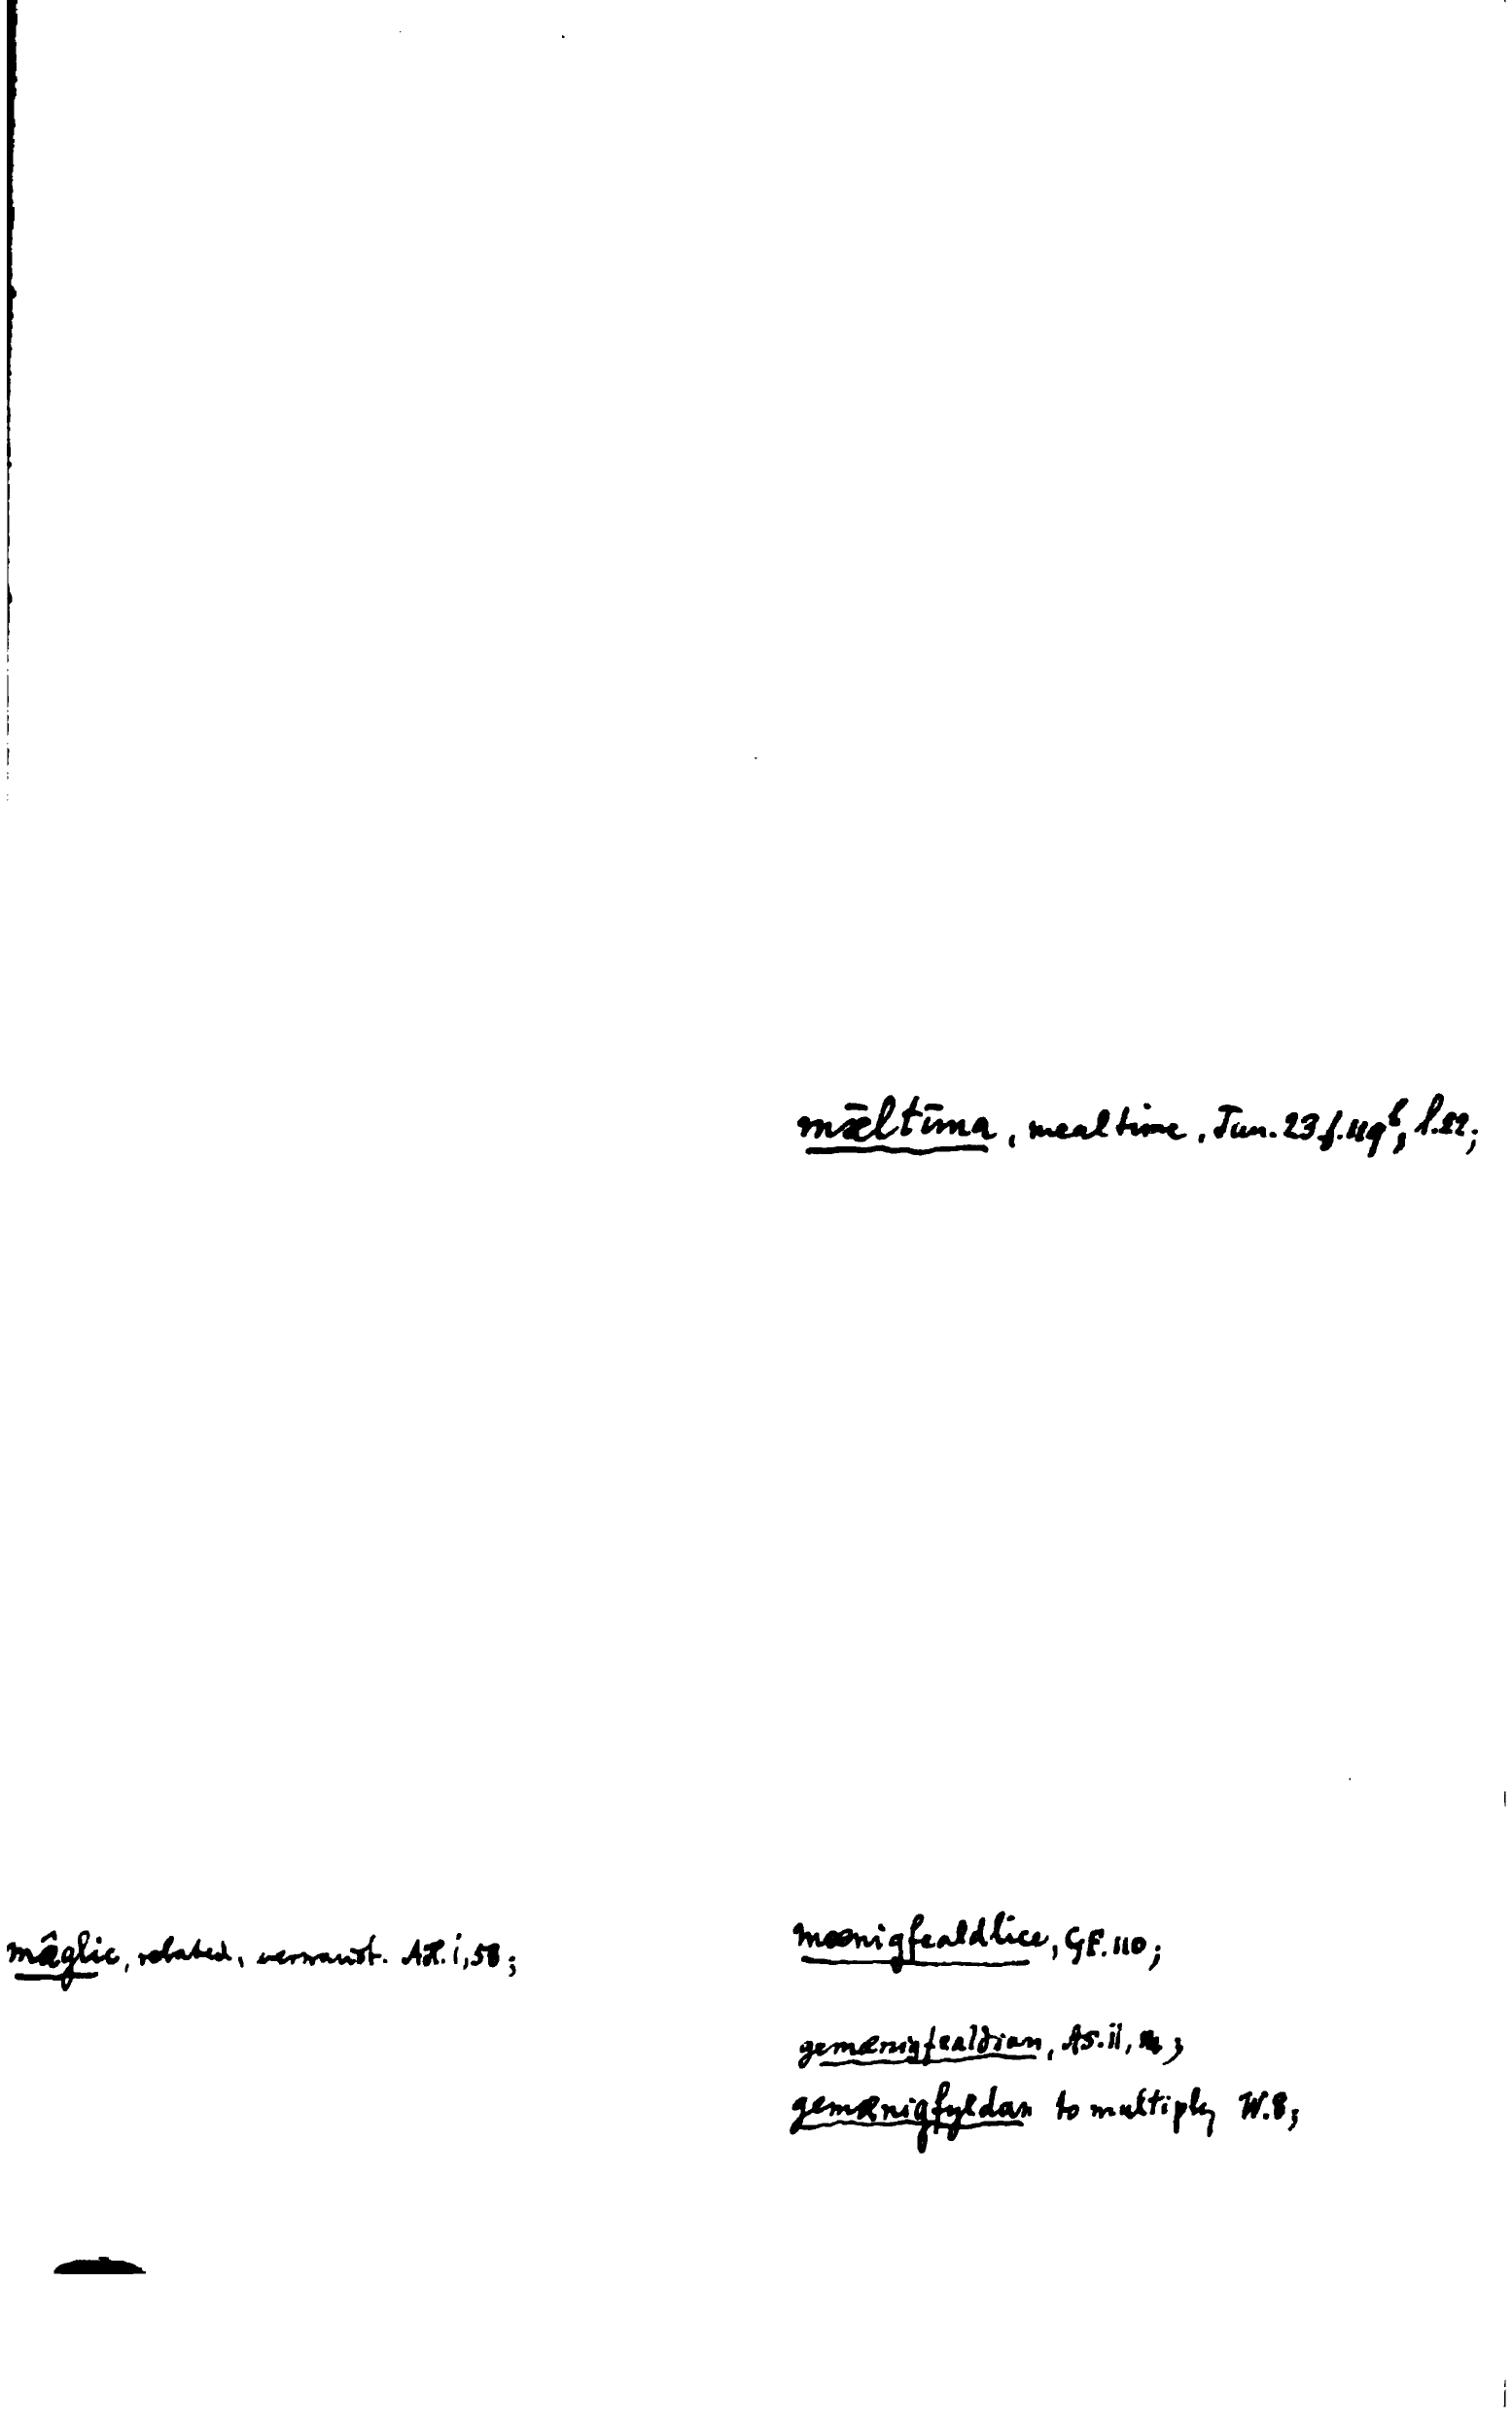 mǣltīma, mealtime, Jun. 23 f. 49ᵇ, l. 22;
mæ̂glic, related, verwandt. AH. i, 58;
mænigfealdlice, GF. 110;
gemænigfealdian, AS. ii,
gemænigfyldan to multiply W. 8;